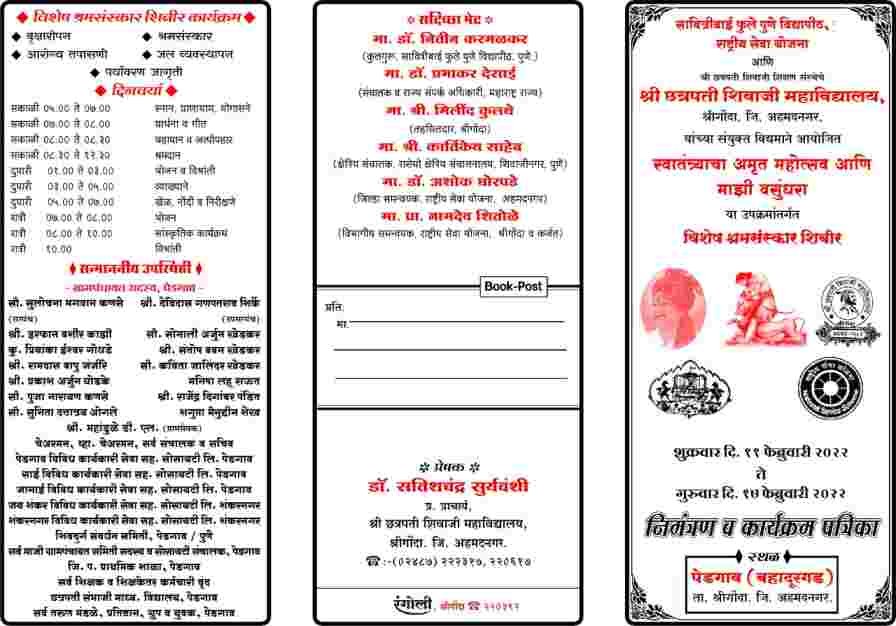 विशेष श्रमसंस्कार शिबीर कार्यक्रम
वृक्षारोपन
श्रमसंस्कार
आरोग्य तपासणी
जल व्यवस्थापन
पर्यावरण जागृती
दिनचर्या
सकाळी ०५.०० ते ०७.०० स्नान, प्राणायाम, योगासने
सकाळी ०७.०० ते ०८.०० प्रार्थना व गीत
सकाळी ०८.०० ते ०८.३० चहापान व अल्पोपहार
सकाळी ०८.३० ते १२.३० श्रमदान
दुपारी ०१.०० ते ०३.०० भोजन व विश्रांती
दुपारी ०३.०० ते ०५.०० व्याख्याने
दुपारी ०५.०० ते ०७.०० खेळ, नोंदी व निरीक्षणे
रात्री ०७.०० ते ०८.०० भोजन
रात्री ०८.०० ते १०.०० सांस्कृतिक कार्यक्रम
रात्री १०.०० विश्रांती
सन्माननीय उपस्थिती
- ग्रामपंचायत सदस्य, पेडगाव -
सौ. सुलोचना भगवान कणसे
श्री. देविदास गणपतराव शिर्के
(सरपंच)
(उपसरपंच)
श्री. इरफान बशीर काझी
सौ. सोनाली अर्जुन खेडकर
कु. प्रियांका ईश्वर गोधडे
श्री. संतोष बबन खेडकर
श्री. रामदास बापु जंजीरे
सौ. कविता जालिंदर खेडकर
श्री. प्रकाश अर्जुन घोडके
मनिषा लहु राऊत
सौ. पुजा नारायण कणसे
श्री. राजेंद्र दिगांबर पंडित
सौ. सुनिता दत्तात्रय औगले
शगुफ्ता मैनुद्दीन शेख
श्री. महांडुळे डी. एल. (ग्रामसेवक)
चेअरमन, व्हा. चेअरमन, सर्व संचालक व सचिव
पेडगाव विविध कार्यकारी सेवा सह. सोसायटी लि. पेडगाव
साई विविध कार्यकारी सेवा सह. सोसायटी लि. पेडगाव
जामाई विविध कार्यकारी सेवा सह. सोसायटी लि. पेडगाव
जय शंकर विविध कार्यकारी सेवा सह. सोसायटी लि. शंकरनगर
शंकरनगर विविध कार्यकारी सेवा सह. सोसायटी लि. शंकरनगर
शिवदुर्ग संवर्धन समिती, पेडगाव / पुणे
सर्व माजी ग्रामपंचायत समिती सदस्य व सोसायटी संचालक, पेडगाव
जि. प. प्राथमिक शाळा, पेडगाव
सर्व शिक्षक व शिक्षकेतर कर्मचारी वृंद
छत्रपती संभाजी माध्य. विद्यालय, पेडगाव
सर्व तरूण मंडळे, प्रतिष्ठान, ग्रुप व युवक, पेडगाव
सदिच्छा भेट
मा. डॉ. नितीन करमळकर
(कुलगुरू, सावित्रीबाई फुले पुणे विद्यापीठ, पुणे.)
मा. डॉ. प्रभाकर देसाई
(संचालक व राज्य संपर्क अधिकारी, महाराष्ट्र राज्य)
मा. श्री. मिलींद कुलथे
(तहसिलदार, श्रीगोंदा)
मा. श्री. कार्तिकेय साहेब
(क्षेत्रिय संचालक, रासेयो क्षेत्रिय संचालनालय, शिवाजीनगर, पुणे)
मा. डॉ. अशोक घोरपडे
(जिल्हा समन्वयक, राष्ट्रीय सेवा योजना, अहमदनगर)
मा. प्रा. नामदेव शितोळे
(विभागीय समन्वयक, राष्ट्रीय सेवा योजना, श्रीगोंदा व कर्जत)
Book-Post
प्रति.
मा.
प्रेषक
डॉ. सतिशचंद्र सुर्यवंशी
प्र. प्राचार्य,
श्री छत्रपती शिवाजी महाविद्यालय,
श्रीगोंदा. जि. अहमदनगर.
☎:-(०२४८७) २२२३१७, २२०६१७
रंगोली, श्रीगोंदा ☎ २२०३९२
सावित्रीबाई फुले पुणे विद्यापीठ,
राष्ट्रीय सेवा योजना
आणि
श्री छत्रपती शिवाजी शिक्षण संस्थेचे
श्री छत्रपती शिवाजी महाविद्यालय,
श्रीगोंदा. जि. अहमदनगर.
यांच्या संयुक्त विद्यमाने आयोजित
स्वातंत्र्याचा अमृत महोत्सव आणि
माझी वसुंधरा
या उपक्रमांतर्गत
विशेष श्रमसंस्कार शिबीर
शुक्रवार दि. ११ फेब्रुवारी २०२२
ते
गुरुवार दि. १७ फेब्रुवारी २०२२
निमंत्रण व कार्यक्रम पत्रिका
स्थळ
पेडगाव (बहादूरगड)
ता. श्रीगोंदा. जि. अहमदनगर.